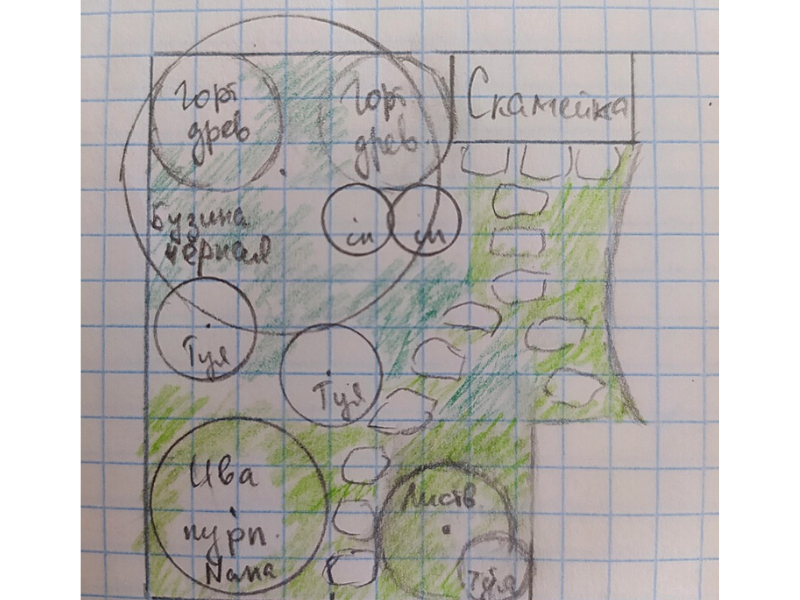 Горт
древ
Горт
древ
Скамейка
Бузина
чёрная
сп
сп
Туя
Туя
Ива
пурп.
Nana
Листв
Туя